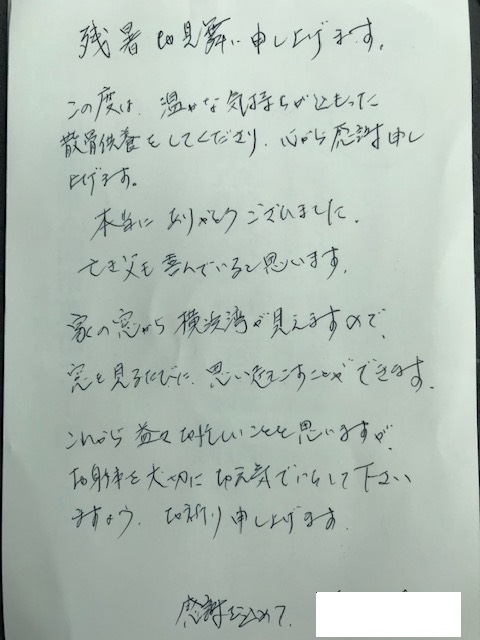 残暑お見舞い申し上げます。
この度は、温かな気持ちが込もった
散骨供養をしてくださり、心から感謝申し
上げます。
本当に ありがとうございました。
亡き父も喜んでいると思います。
家の窓から横浜湾が見えますので、
窓を見るたびに、思い起こすことができます。
これから益々お忙しいことと思いますが、
お身体を大切にお元気でいらして下さい
ますよう、お祈り申し上げます。
感謝を込めて、